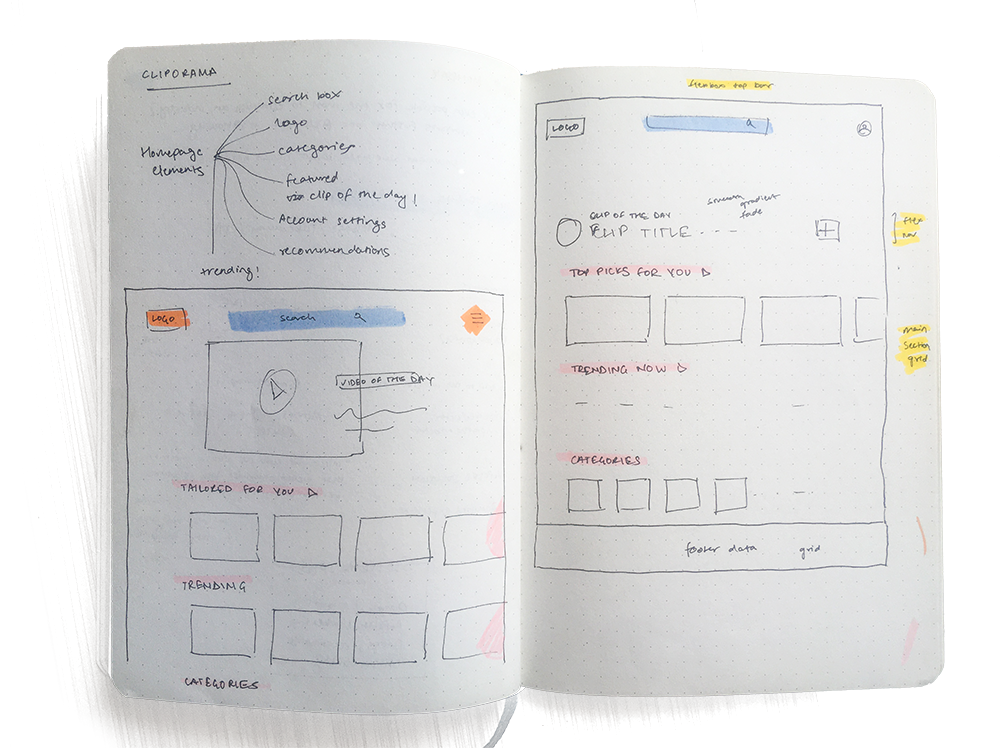 CLIPORAMA
search box
logo
Homepage
elements
categories
featured
via clip of the day!
Account settings
recommendations
trending!
LOGO
search
VIDEO OF THE DAY
TAILORED FOR YOU
TRENDING
CATEGORIES
top bar
LOGO
gradient
fade
CLIP OF THE DAY
CLIP TITLE - - -
flex
nav
TOP PICKS FOR YOU
main
section
grid
TRENDING NOW
CATEGORIES
footer data
grid